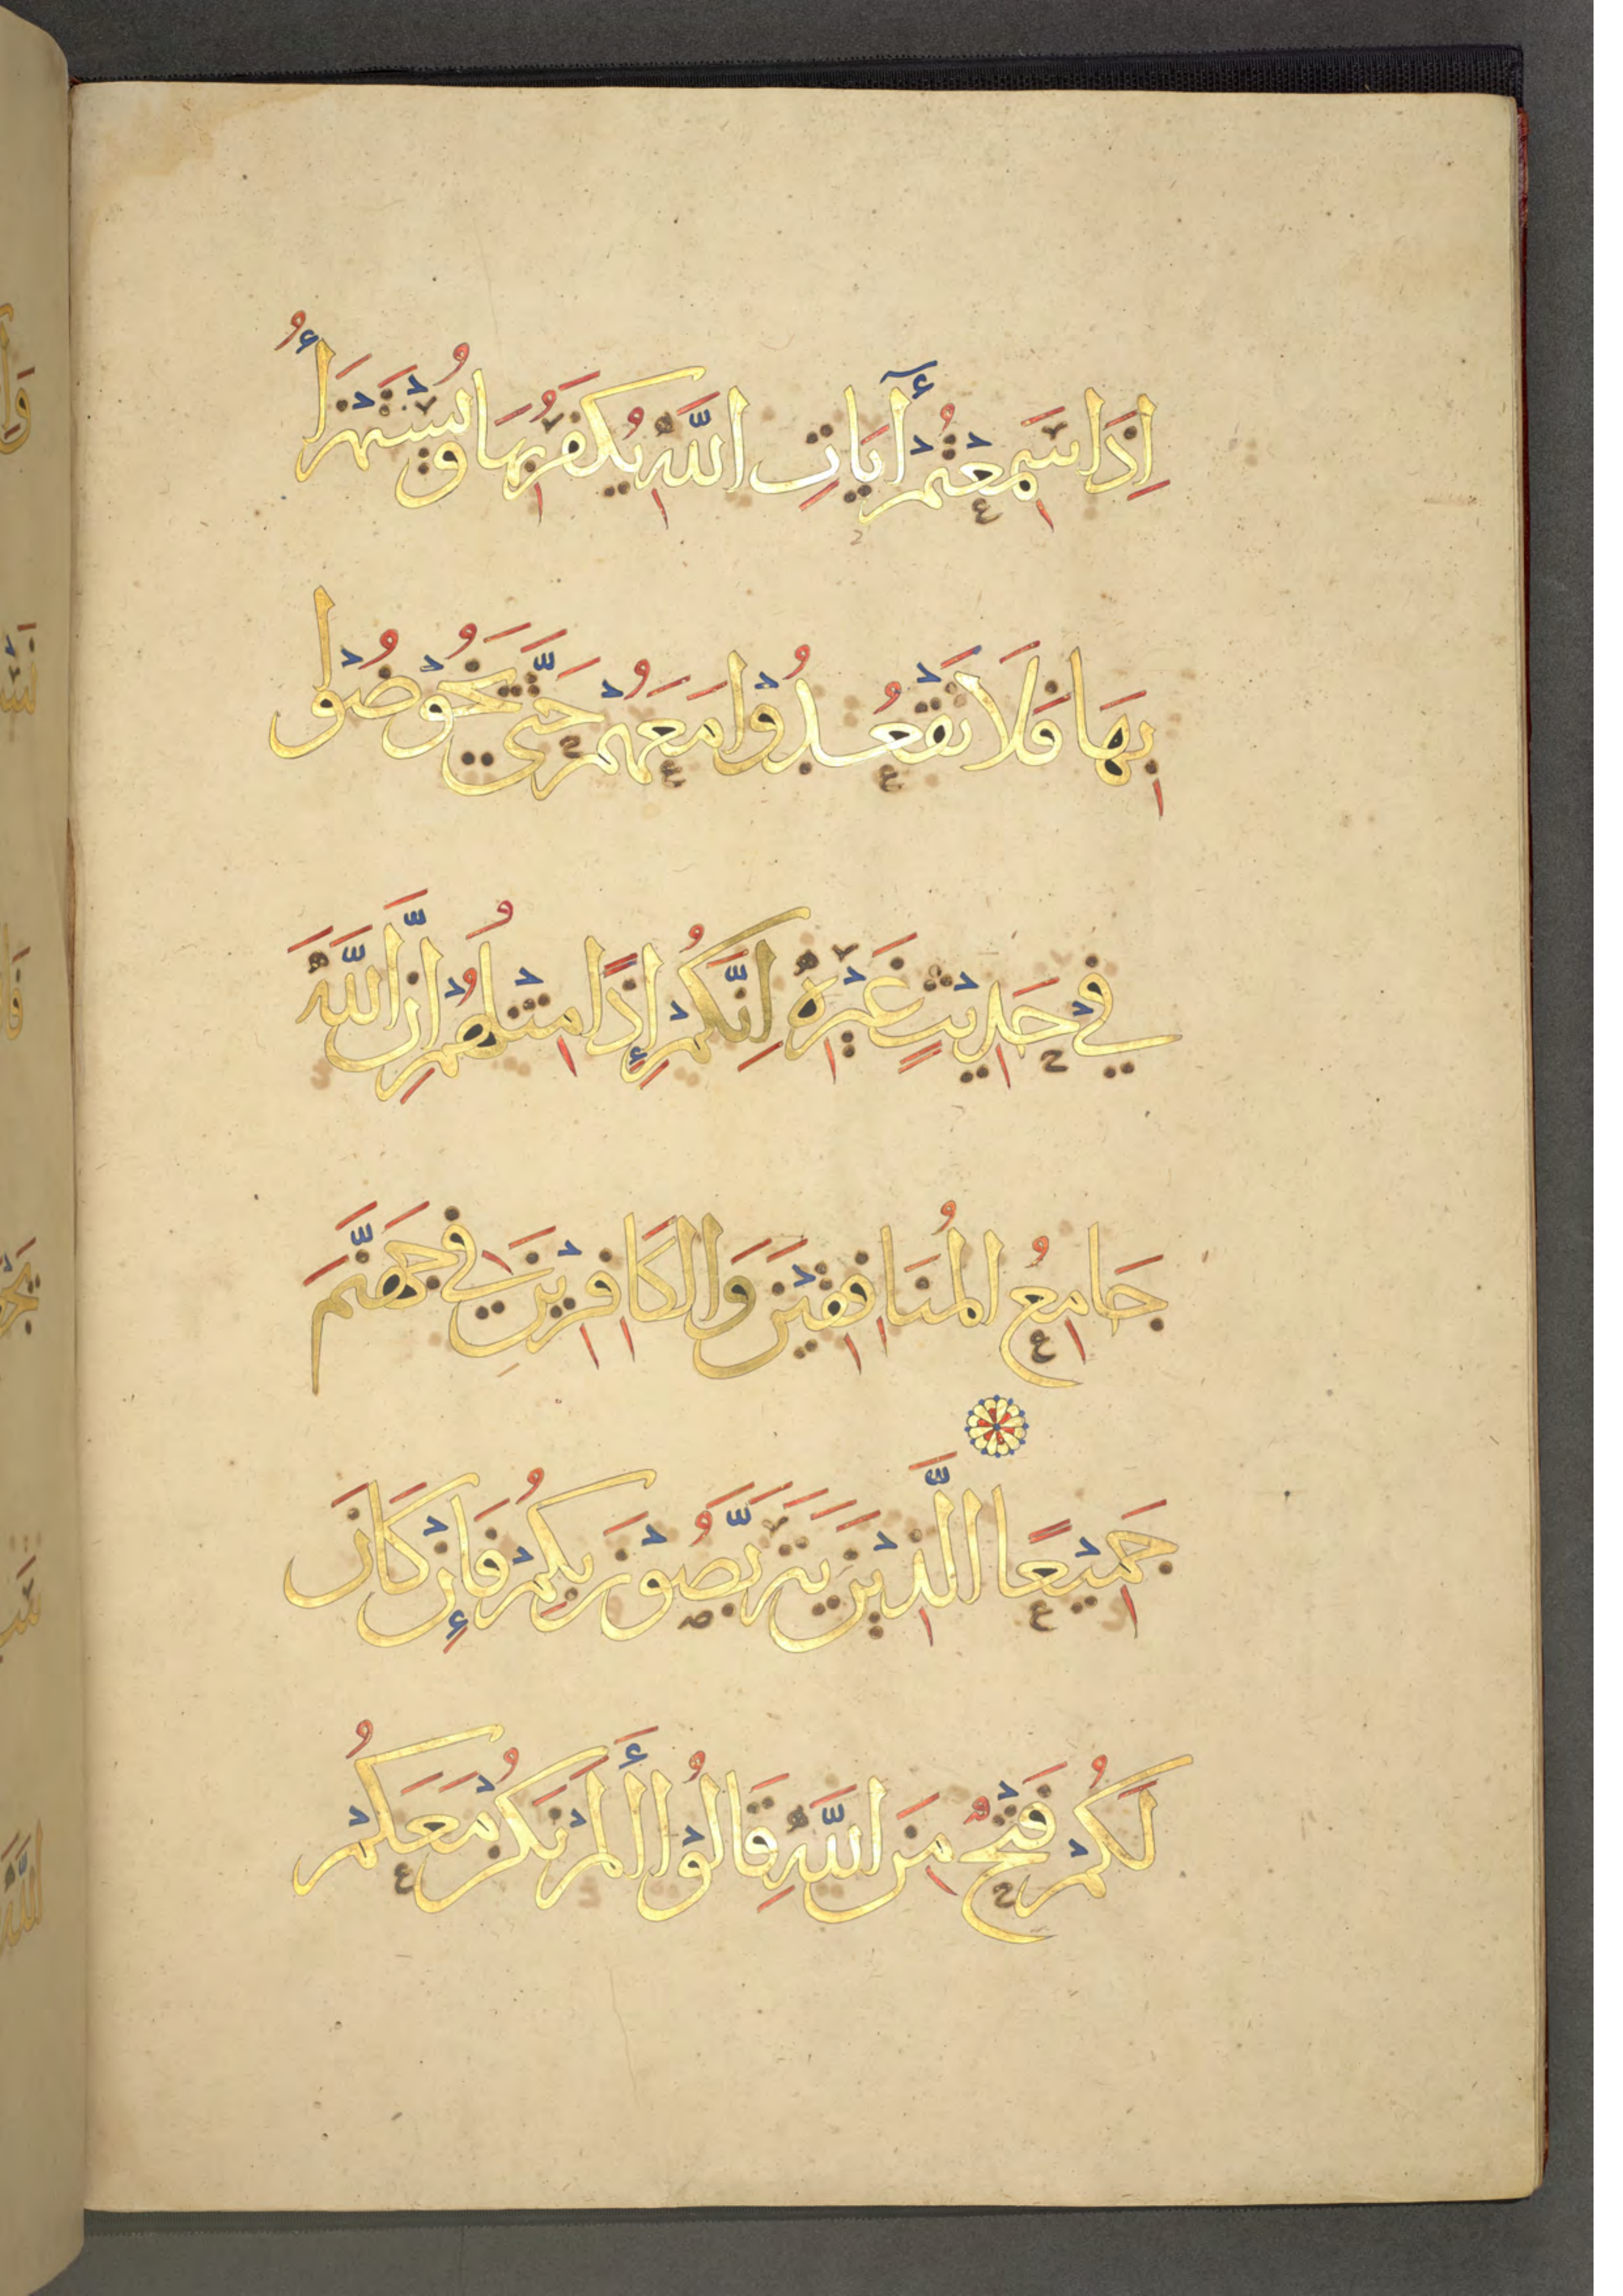 إِذَا سَمِعْتُمْ أٓيَاتِ اللَّهِ يُكْفَرُ بِهَا وَيُسْتَهْزَأُ
بِهَا فَلَا تَقْعُدُوْا مَعَهُمْ حَتَّى يَخُوْضُوْا
فِيْ حَدِيْثٍ غَيْرِهِ إِنَّكُمْ إِذًا مِثْلُهُمْ إِنَّ اللَّهَ
جَامِعُ الْمُنَافِقِيْنَ وَالْكَافِرِيْنَ فِي جَهَنَّمَ
جَمِيْعًا الَّذِيْنَ يَتَرَبَّصُوْنَ بِكُمْ فَإِنْ كَانَ
لَكُمْ فَتْحٌ مِنَ اللَّهِ قَالُوْا أَلَمْ نَكُنْ مَعَكُمْ